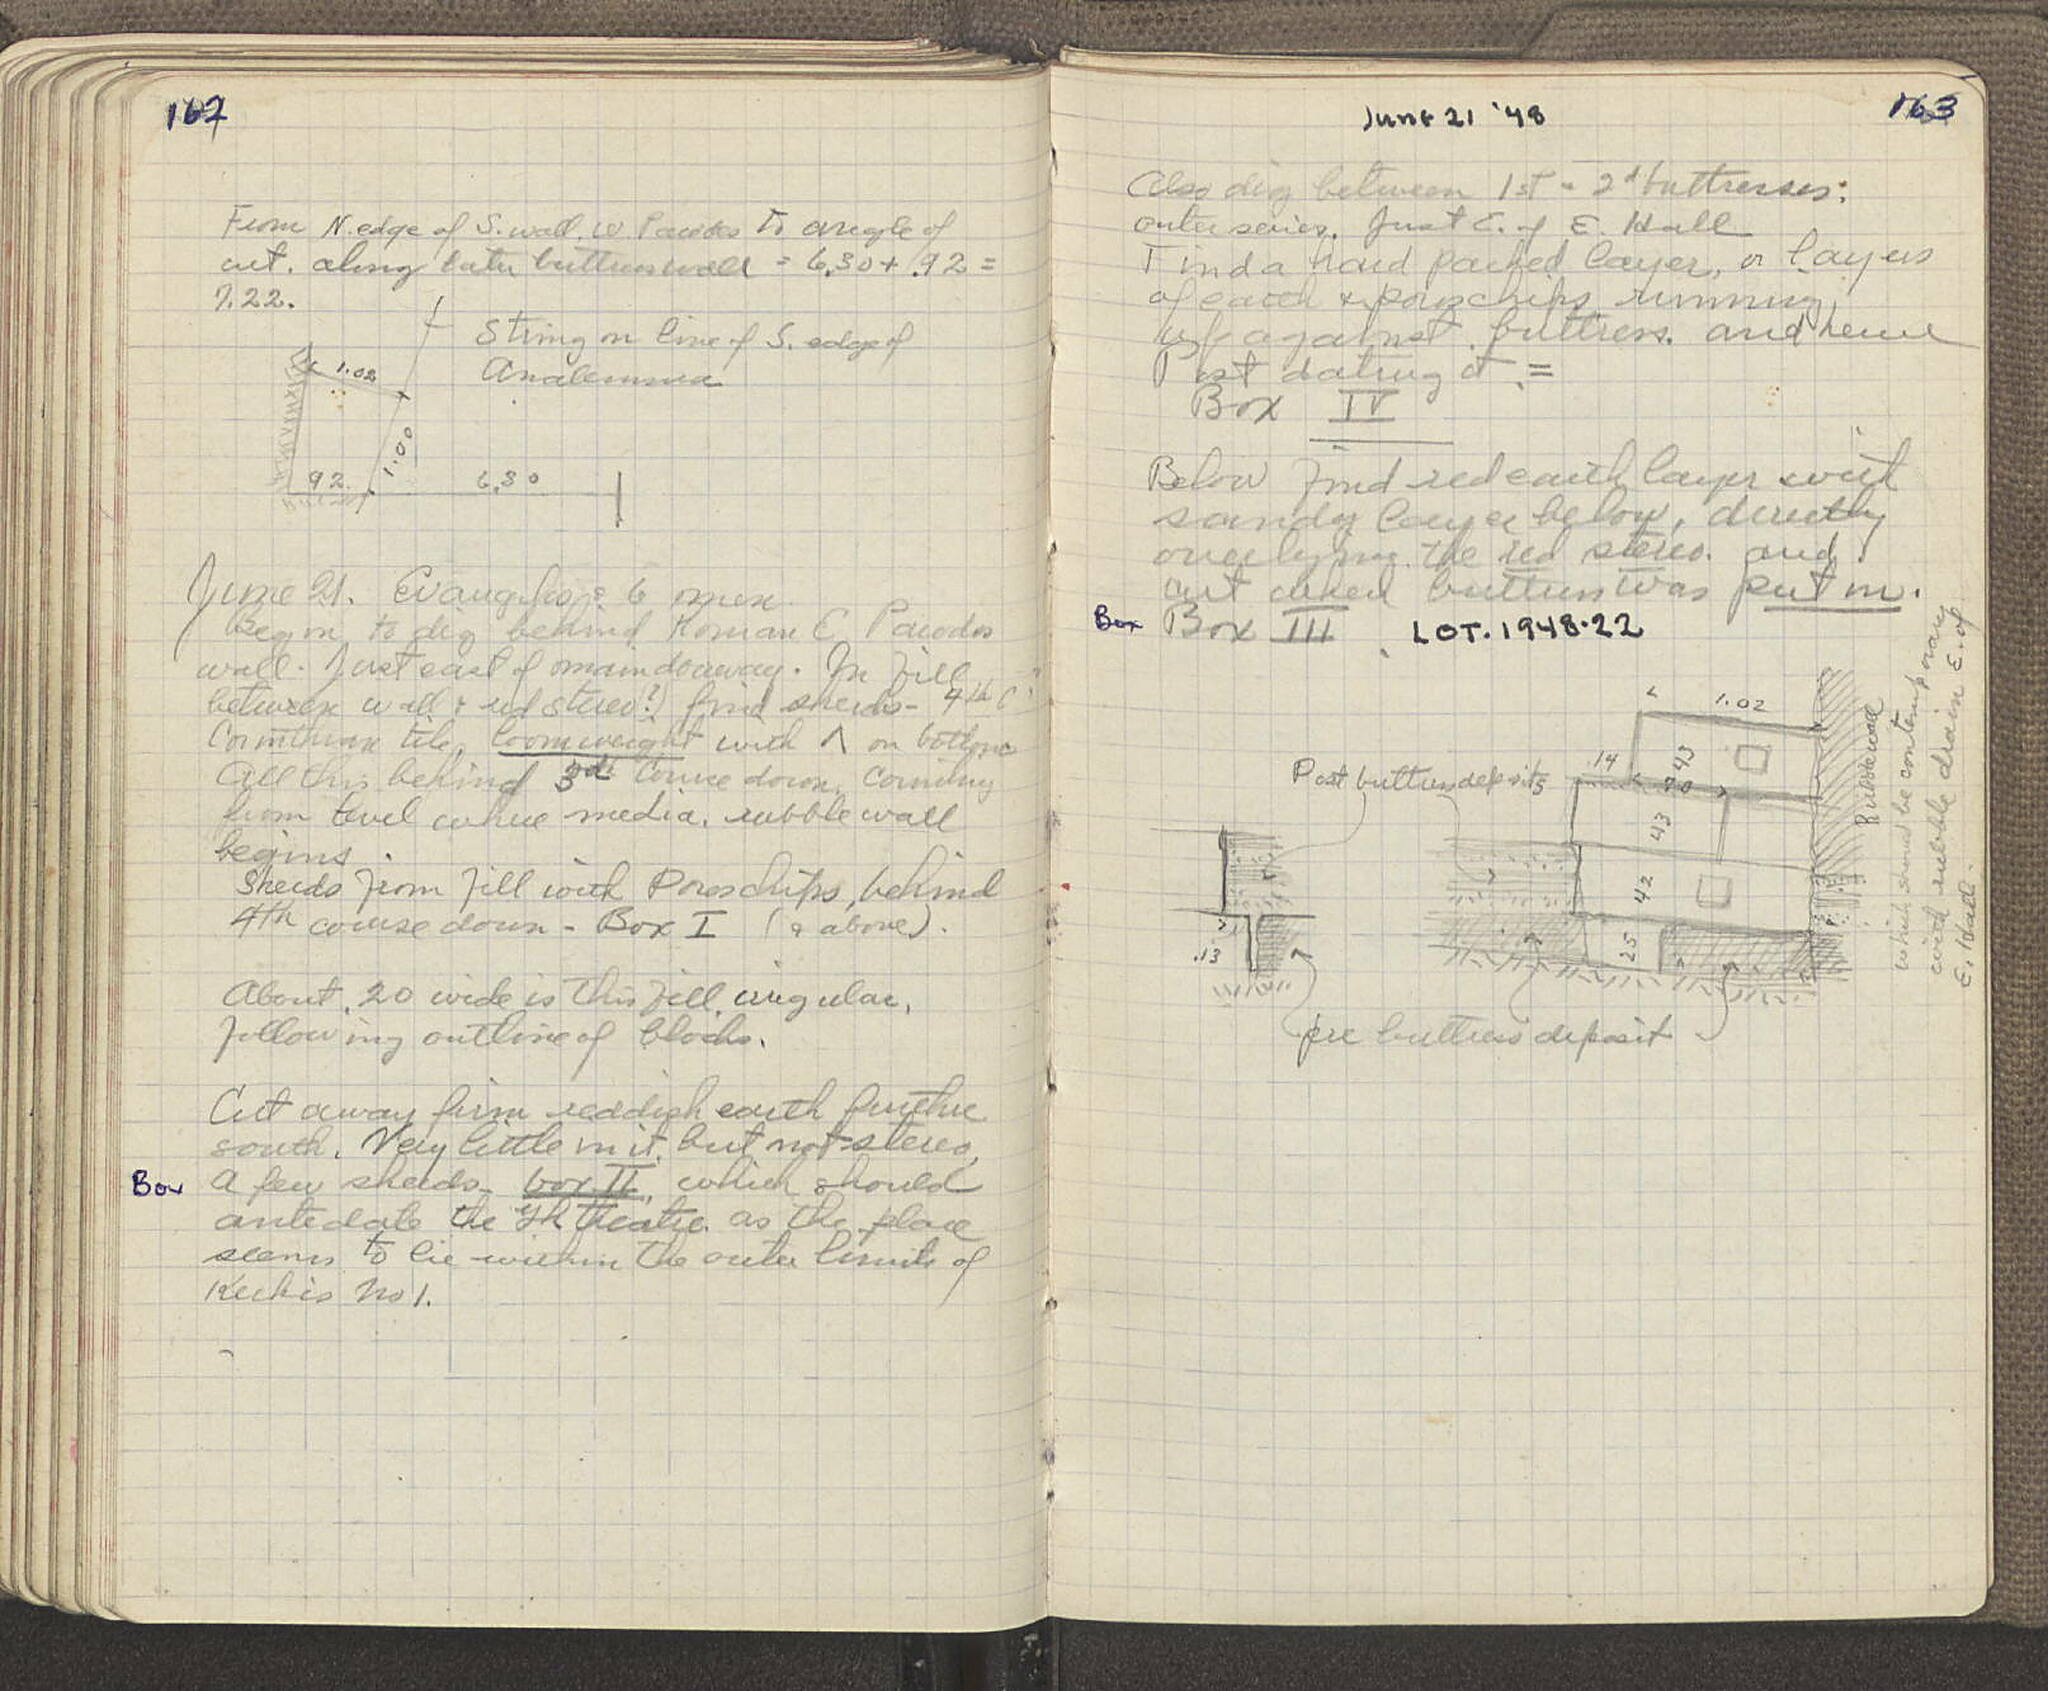 162
From N. edge of S. wall. W. Parodos to angle of
cut. along later buttress wall = 6.30 + .92 =
7.22.
String on line of S. edge of
Analemma
1.02
1.00
92
6.30
June 21. Evangelos & 6 men
Begin to dig behind Roman E. Parodos
wall. Just east of main doorway. In fill
between wall & red stereo(?) find sherds - 4th C
Corinthian tile, loomweight with Λ on bottom
All this behind 3rd course down, coming
from level where media. rubble wall
begins
Sherds from fill with Poros chips, behind
4th course down - Box I (& above).
About .20 wide is this fill, irregular,
following outline of blocks.
Cut away firm reddish earth further
south. Very little in it, but not stereo,
Box
A few sherds - box II, which should
antedate the Gk theatre. as the place
seems to lie within the outer limits of
Kerkis No 1.
163
June 21 '48
Also dig between 1st - 2d buttresses:
outer series. Just E. of E. Hall
Find a hard packed layer, or layers
of earth & poros chips running
up against buttress. and hence
Post dating it =
Box IV
Below find red earth layer with
sandy layer below, directly
overlying the red stereo. and
cut when buttress was put in.
Box
Box III LOT. 1948-22
1.02
.14
43
70
43
42
25
.13
Post buttress deposits
pre buttress deposit
Rubble wall
which should be contemporary
with rubble drain E. of
E. Hall.